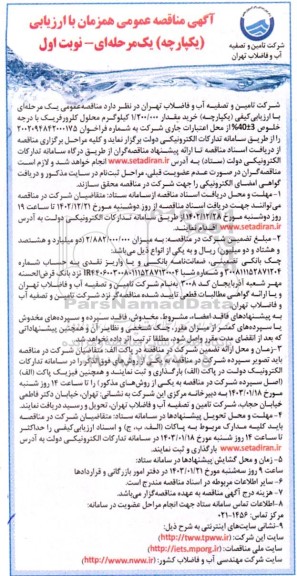 آگهی مناقصه عمومی همزمان با ارزیابی
(یکپارچه) یک‌مرحله‌ای- نوبت اول
شرکت تامین و تصفیه
آب و فاضلاب تهران
شرکت تامین و تصفیه آب و فاضلاب تهران در نظر دارد مناقصه‌عمومی یک مرحله‌ای
با ارزیابی کیفی (یکپارچه) خرید مقدار ۱/۲۰۰/۰۰۰ کیلوگرم محلول کلرورفریک با درجه
خلوص 3±40% از محل اعتبارات جاری شرکت به شماره فراخوان ۲۰۰۲۰۹۴۸۴۲۰۰۰۱۷۵
را از طریق سامانه تدارکات الکترونیکی دولت برگزار نماید و کلیه مراحل برگزاری مناقصه
از دریافت اسناد مناقصه تا ارائه پیشنهاد مناقصه‌گران از طریق درگاه سامانه تدارکات
الکترونیکی دولت (ستاد) به آدرس www.setadiran.ir انجام خواهد شد و لازم است
مناقصه‌گران در صورت عدم عضویت قبلی، مراحل ثبت‌نام در سایت مذکور و دریافت
گواهی امضای الکترونیکی را جهت شرکت در مناقصه محقق سازند.
۱- مهلت و محل دریافت اسناد مناقصه ازسامانه ستاد: متقاضیان شرکت در مناقصه
می‌توانند جهت دریافت اسناد مناقصه از روز دوشنبه مورخ ۱۴۰۲/۱۲/۲۱ تا ساعت ۱۹
روز دوشنبه مورخ ۱۴۰۲/۱۲/۲۸ از طریق سامانه تدارکات الکترونیکی دولت به آدرس
www.setadiran.ir اقدام نمایند.
۲- مبلغ تضمین شرکت در مناقصه: به میزان ۲/۸۸۲/۰۰۰/۰۰۰ (دو میلیارد و هشتصد
و هشتاد و دو میلیون) ریال و به یکی از انواع ذیل می‌باشد:
چک بانکی تضمینی، ضمانت‌نامه بانکی و یا واریز نقدی به حساب شماره
نزد بانک قرض‌الحسنه
مهر شعبه آذربایجان کد ۳۰۰۸ به‌نام شرکت تامین و تصفیه آب و فاضلاب تهران
و یا ارائه گواهی مطالبات قطعی تایید شده مناقصه‌گر نزد شرکت تامین و تصفیه آب
و فاضلاب تهران
به پیشنهادهای فاقد امضاء، مشروط، مخدوش، فاقد سپرده و سپرده‌های مخدوش
یا سپرده‌های کمتر از میزان مقرر، چک شخصی و نظایر آن و همچنین پیشنهاداتی
که بعد از انقضای مدت مقرر واصل شود، مطلقا ترتیب اثر داده نخواهد شد.
۳- زمان و محل ارائه تضمین شرکت در مناقصه در پاکت الف: متقاضیان شرکت در مناقصه
باید تصویر سپرده شرکت در مناقصه به یکی از روش‌های فوق‌الذکر را در سامانه تدارکات
الکترونیک دولت در پاکت (الف) بارگذاری و ثبت نمایند و همچنین فیزیک پاکت (الف)
(اصل سپرده شرکت در مناقصه به یکی از روش‌های مذکور) را تا ساعت ۱۴ روز شنبه
مورخ ۱۴۰۳/۰۱/۱۸ به دبیرخانه مرکزی این شرکت به نشانی: تهران، خیابان دکتر فاطمی
خیابان حجاب، شرکت تامین و تصفیه آب و فاضلاب تهران، تحویل و رسید دریافت نمایند.
۴- مهلت و محل تحویل پیشنهادها در سامانه ستاد: متقاضیان شرکت در مناقصه
باید کلیه مدارک مربوط به پاکات (الف، ب، ج) و اسناد ارزیابی کیفی را حداکثر
تا ساعت ۱۴ روز شنبه مورخ ۱۴۰۳/۰۱/۱۸ در سامانه تدارکات الکترونیکی دولت به آدرس
www.setadiran.ir بارگذاری و ثبت نمایند.
۵- زمان و محل گشایش پیشنهادها در سامانه ستاد:
ساعت ۹ روز سه‌شنبه مورخ ۱۴۰۳/۰۱/۲۱ در دفتر امور بازرگانی و قراردادها
۶- سایر اطلاعات مربوطه در اسناد مناقصه مندرج است.
۷- هزینه درج آگهی مناقصه به عهده مناقصه‌گزار می‌باشد.
۸- اطلاعات تماس سامانه ستاد جهت انجام مراحل عضویت در سامانه:
مرکز تماس: ۱۴۵۶-۰۲۱
۹- نشانی سایت‌های اینترنتی به شرح ذیل:
سایت این شرکت: (http://tww.tpww.ir)
سایت ملی مناقصات: (http://iets.mporg.ir)
سایت شرکت مهندسی آب و فاضلاب کشور: (http://www.nww.ir)